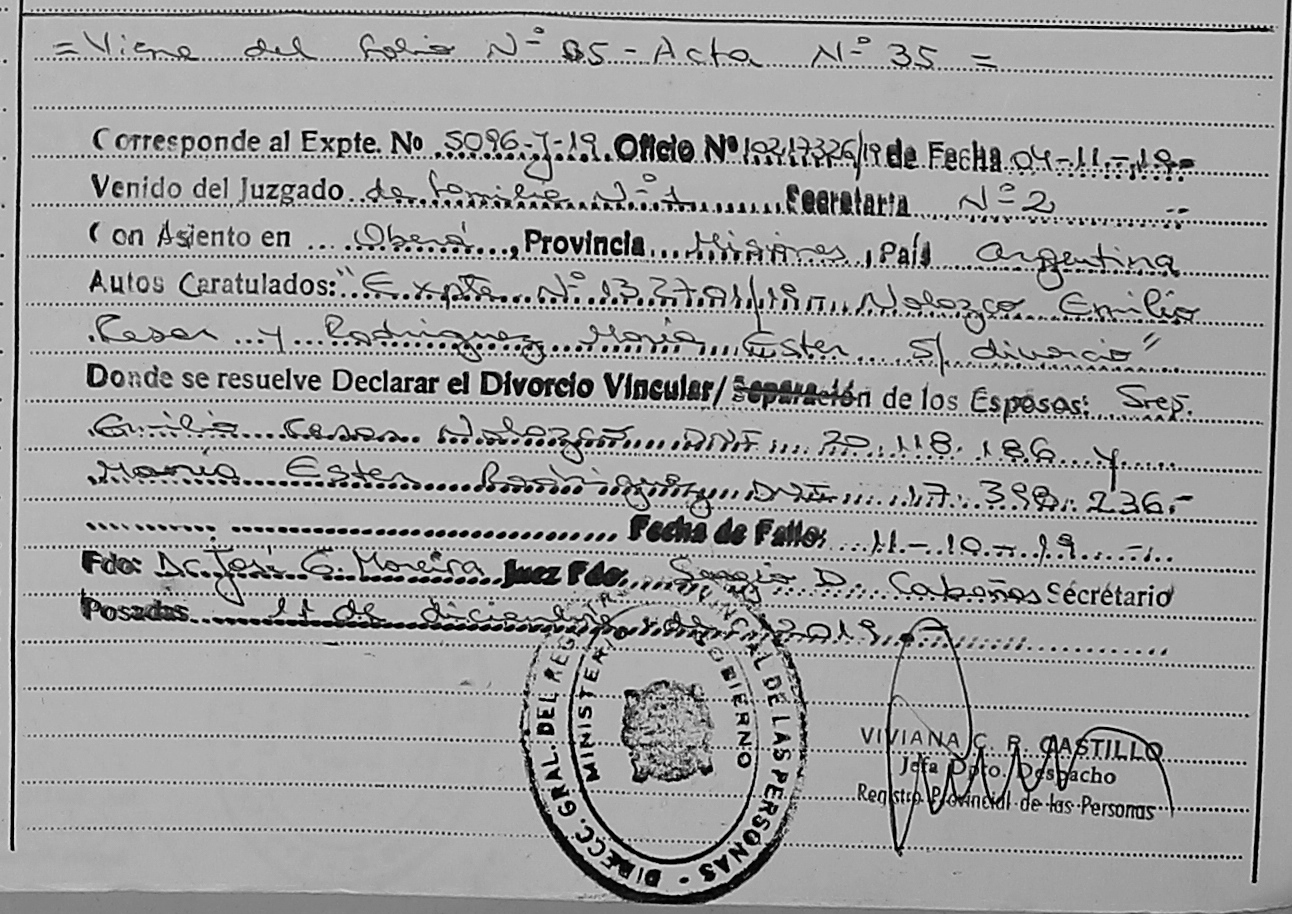 = Viene del folio Nº 85 - Acta Nº 35 =
Corresponde al Expte. No 5096-J-19 Oficio Nº 10217326/19 de Fecha 04-11-19-
Venido del Juzgado de familia Nº 1 Secretaria Nº 2
Con Asiento en Oberá, Provincia Misiones, País Argentina
Autos Caratulados: "Expte Nº 132701/19 Nalozco Emilio
Cesar y Rodriguez María Ester s/ divorcio"
Donde se resuelve Declarar el Divorcio Vincular/ Separación de los Esposos: Sres.
Emilio Cesar Nalozco DNI 20.118.186 y
María Ester Rodriguez DNI 17.398.236.-
Fecha de Fallo: 11-10-19
Fdo: Dr. José G. Moreira Juez Fdo: Sergio D. Cabañas Secretario
Posadas 11 de diciembre de 2019
DIRECC. GRAL. DEL REGISTRO PROVINCIAL DE LAS PERSONAS -
MINISTERIO GOBIERNO
VIVIANA C. R. CASTILLO
Jefa Dpto. Despacho
Registro Provincial de las Personas